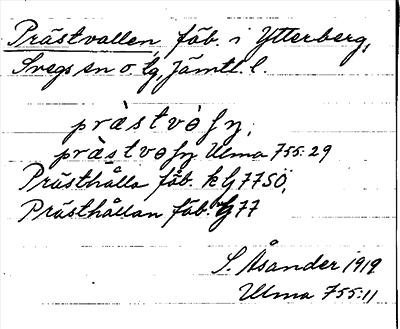 Prästvallen, fäb. i Ytterberg,
Svegs sn o. tg, Jämtl. l.
prà̀stvòły,
prà̀stvoły Ulma 755:29
Prästhålla fäb. kG77SÖ,
Prästhållan fäb. G77
S. Åsander 1919
Ulma 755:11